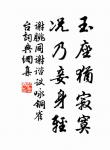 玉座犹寂寞
况乃妾身轻
谢朓同谢谘议咏铜雀
台词典网集